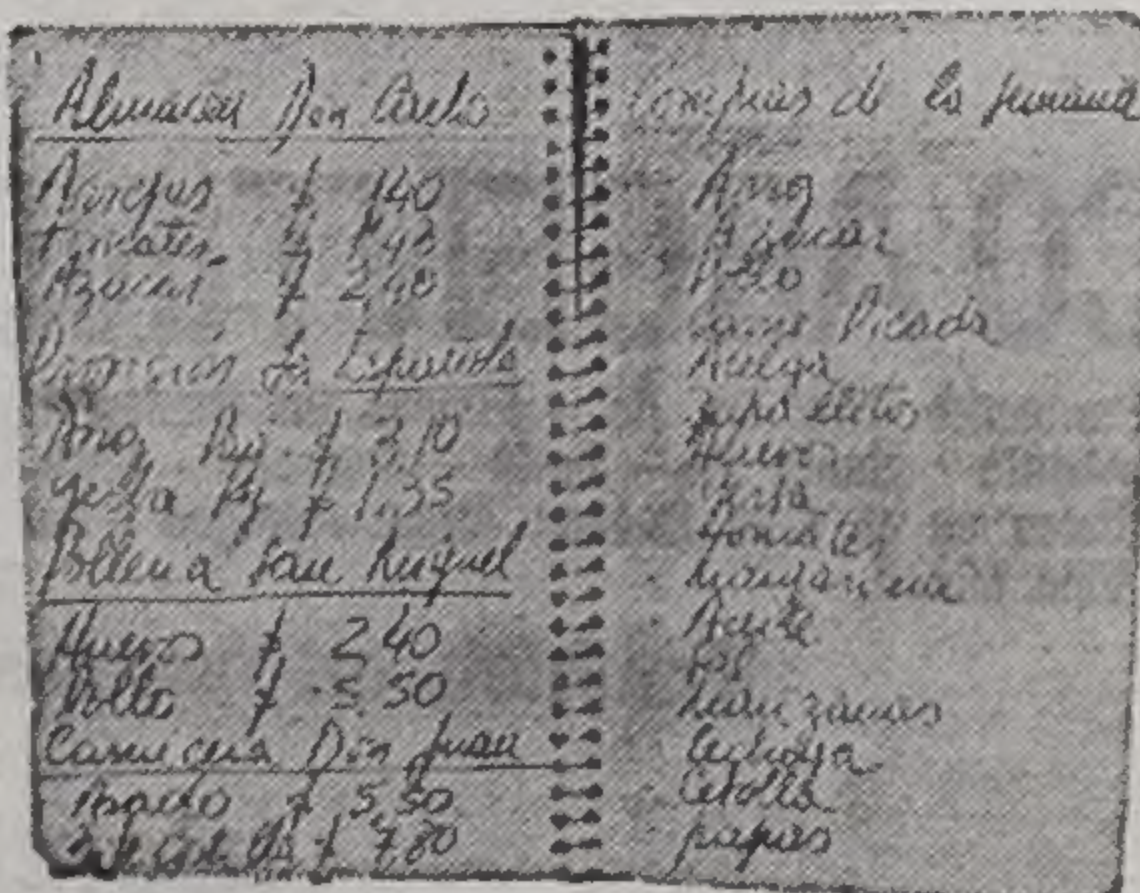 Almacén Don Carlo
$ 1,40
Tomates $ 1,43
Azúcar $ 2,40
La Española
Arroz $ 3,10
Yerba $ 1,35
Pollería San Miguel
Huevos $ 2,40
Pollo $ 5,50
Carnicería Don Juan
$ 5,50
$ 7,80
compras de la semana
Arroz
Azúcar
Pollo
Carne Picada
Acelga
Huevos
Yerba
Tomates
Margarina
Aceite
Manzanas
Lechuga
Cebolla
papas